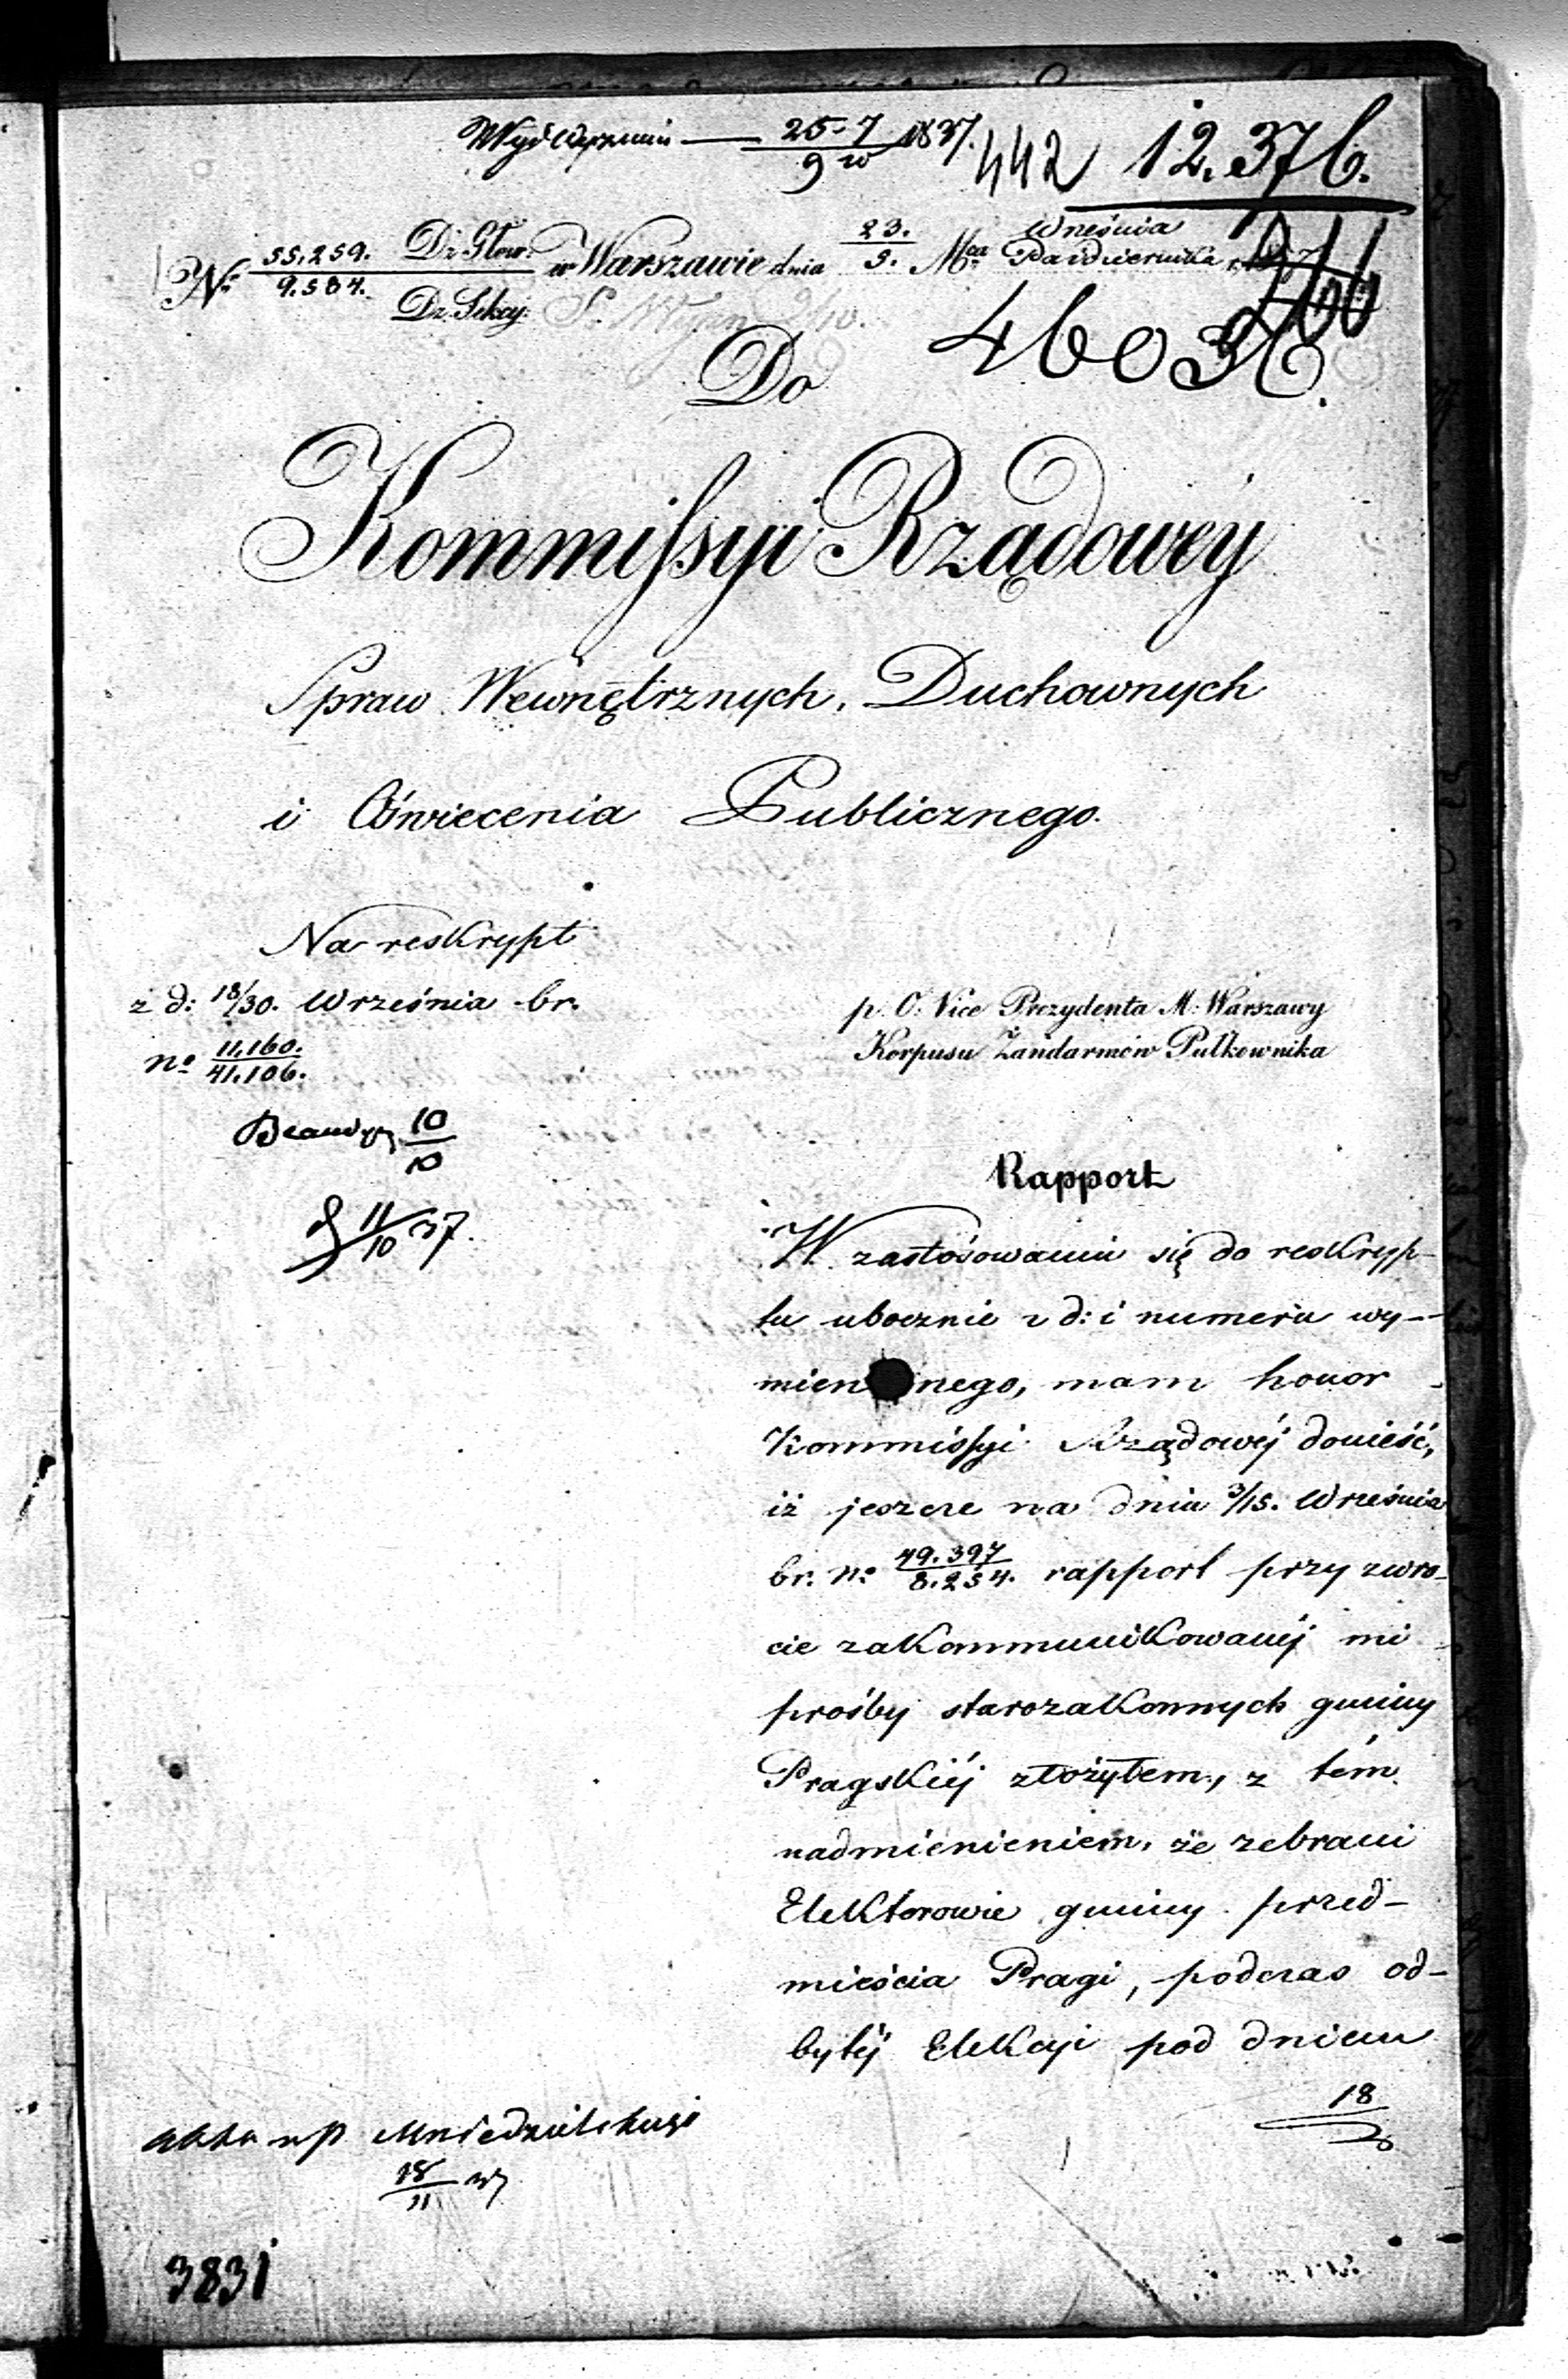 25-7 1837.
9 10
442 12.376.
No 55,259. Dz. Głow: w Warszawie dnia 23. Mca Września
9.584. Dz. Sekcyi 5. Października
46036.
Do
Kommissyi Rządowéy
Spraw Wewnętrznych, Duchownych
i Oświecenia Publicznego.
Na reskrypt
z d: 18/30. Września br.
no 11.160.
41.106.
10
10
11/10 37.
p. O. Vice Prezydenta M. Warszawy
Korpusu Żandarmów Pułkownika
Rapport
W zastósowaniu się do reskryp-
tu ubocznie z d: i numeru wy-
mien nego, mam honor
Kommissyi Rządowéj donieść,
iż jeszcze na dniu 3/15. Września
br. No 49.397
8.254. rapport przy zwro-
cie zakommunikowanéj mi
prośby starozakonnych gminy
Pragskiéj złożyłem, z tém
nadmienieniem, że zebrani
Elektorowie gminy przed-
mieścia Pragi, podczas od-
bytéj Elekcyi pod dniem
18
18
11 37
3831